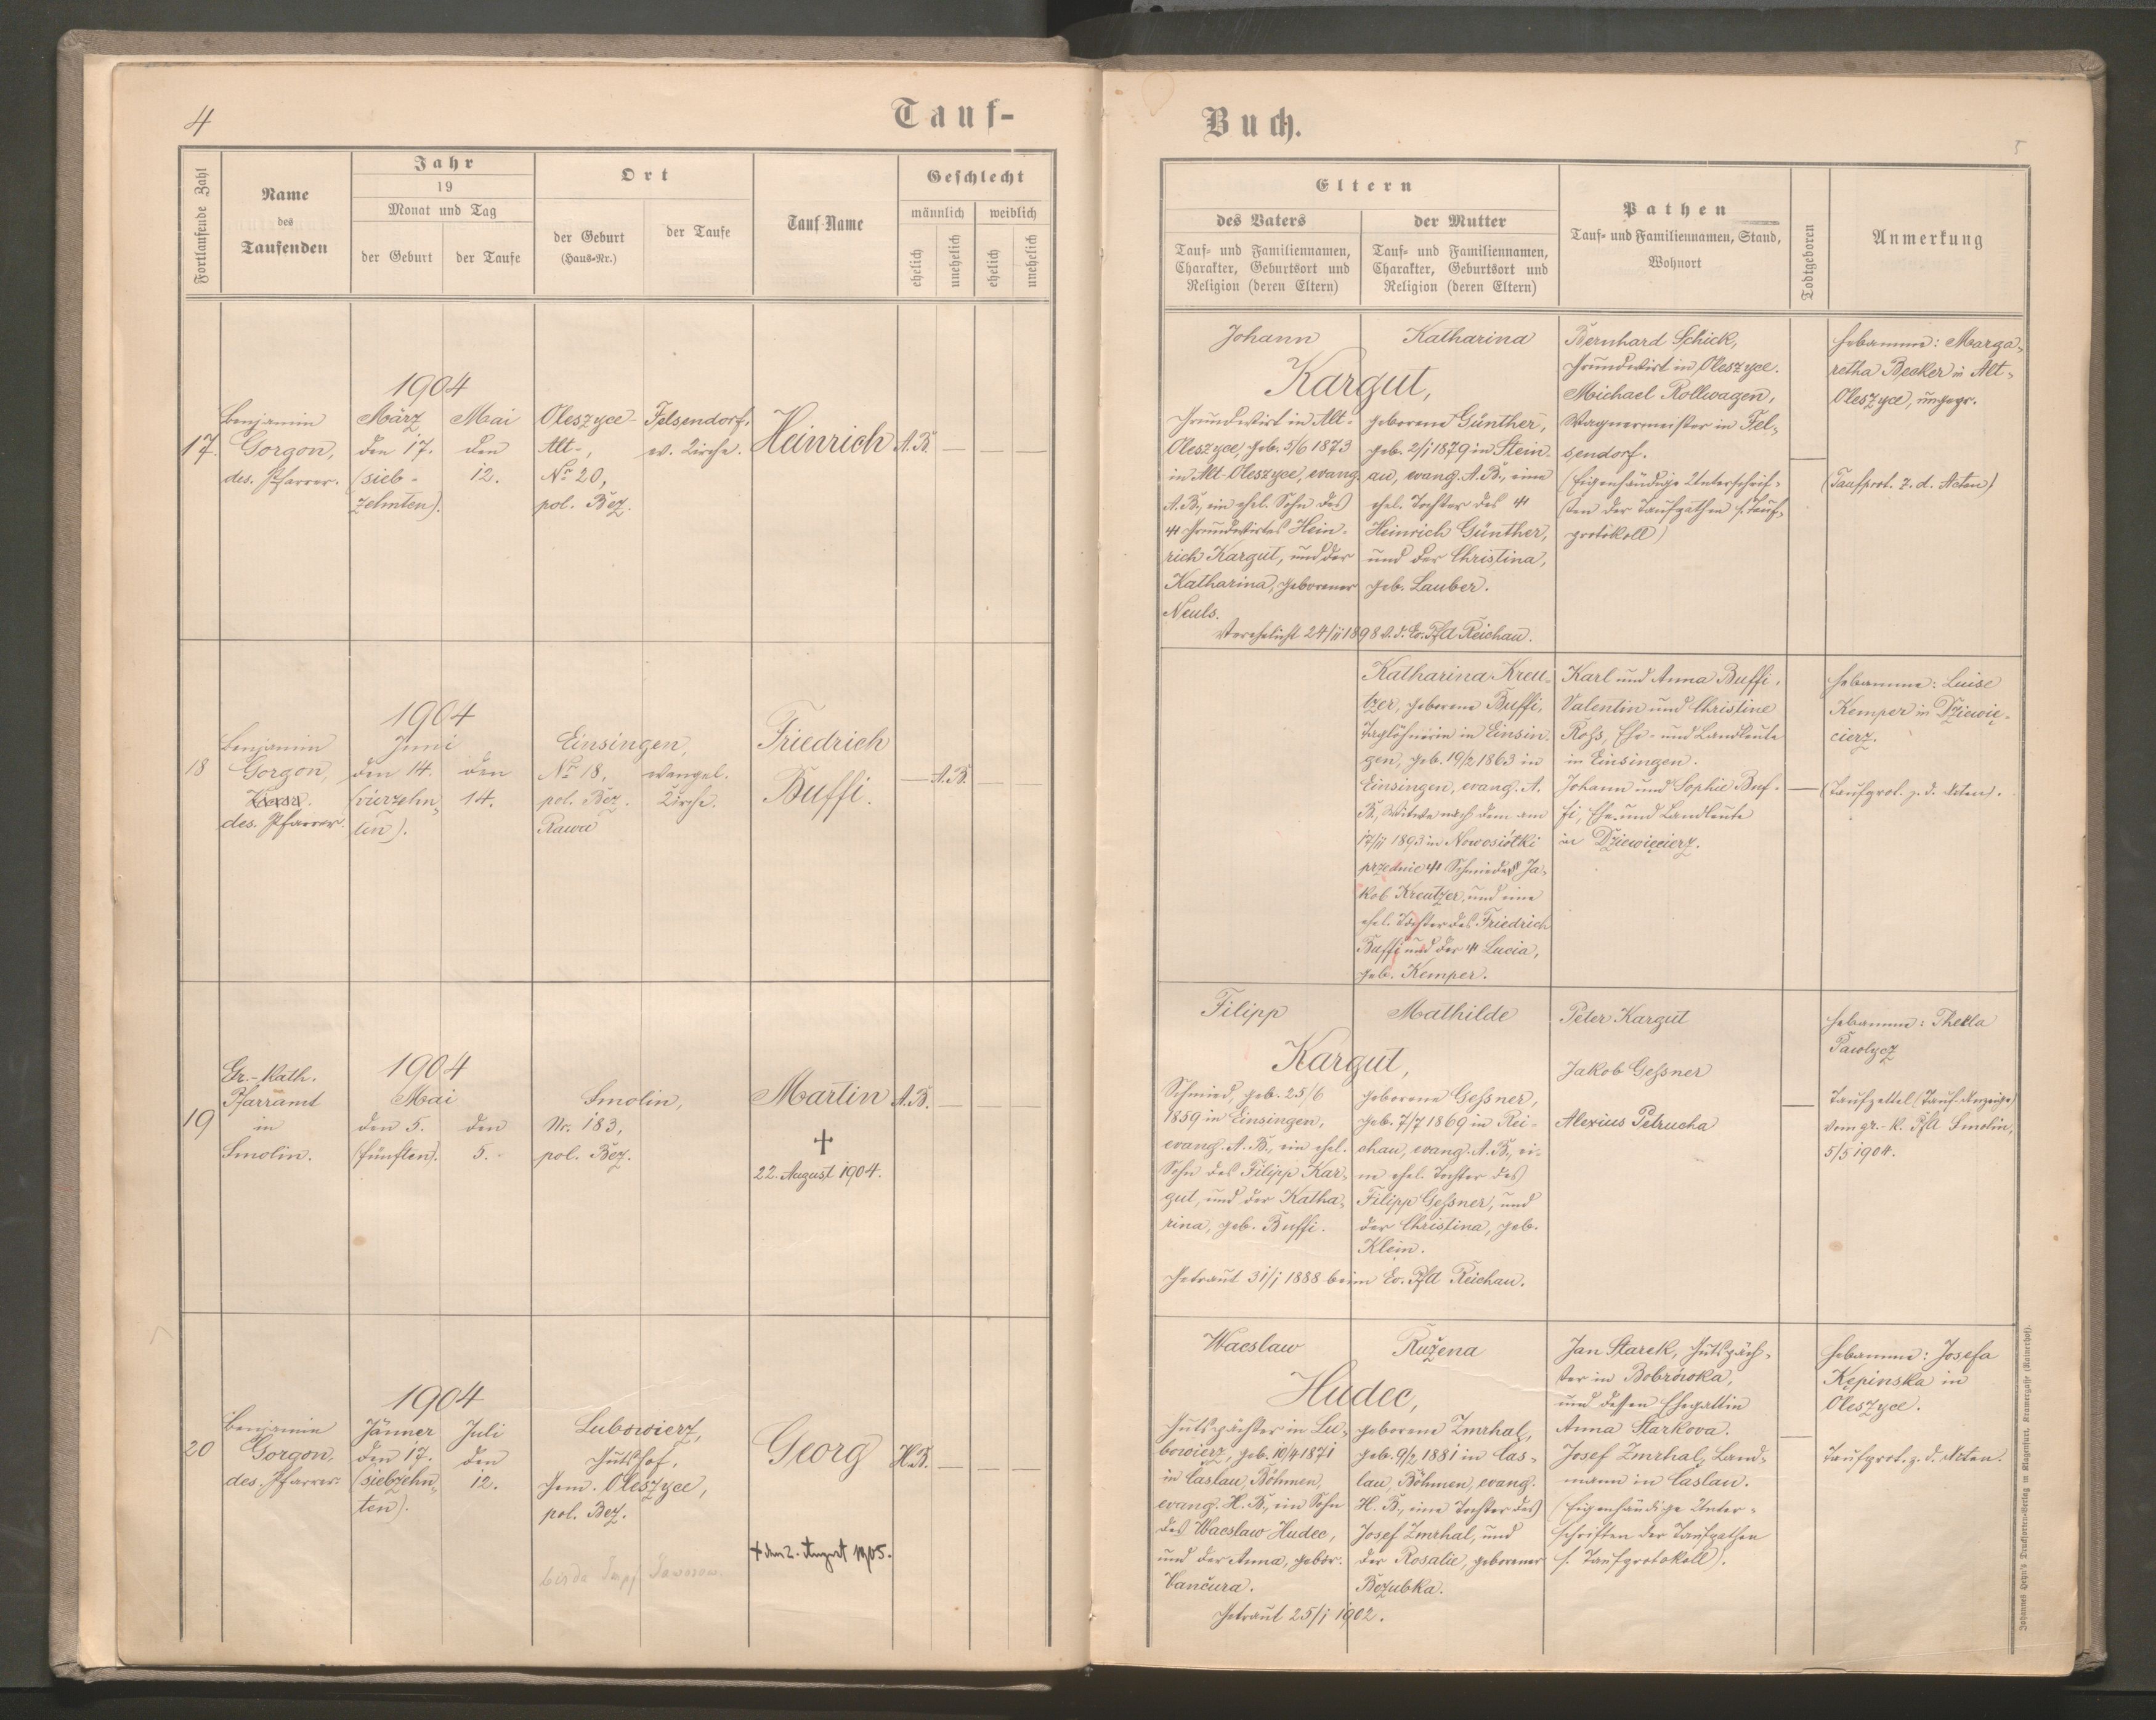 4
Tauf-
Fortlaufende Zahl
Name
des
Taufenden
Jahr
19
Monat und Tag
der Geburt
der Taufe
Ort
der Geburt
(Haus-Nr.)
der Taufe
Tauf-Name
Geschlecht
männlich
weiblich
ehelich
unehelich
ehelich
unehelich
17.
Benjamin
Gorgon,
des. Pfarrer.
1904
März
den 17.
(sieb-
zehnten).
Mai
den
12.
Oleszyce-
Alt-,
No 20,
pol. Bez.
Felsendorf,
ev. Kirche.
Heinrich
A.B.
18
Benjamin
Gorgon,
des. Pfarrer.
1904
Juni
den 14.
(vierzehn-
ten).
den
14.
Einsingen,
No 18,
pol. Bez.
Rawa
evangel.
Kirche.
Friedrich
Buffi.
A.B.
19
Gr.-kath.
Pfarramt
in
Smolin.
1904
Mai
den 5.
(fünften).
den
5.
Smolin,
Nr. 183,
pol. Bez.
Martin
+
22. August 1904.
A.B.
20
Benjamin
Gorgon,
des. Pfarrer.
1904
Jänner
den 17.
(siebzehn-
ten).
Juli
den
12.
Lubowierz,
Gutshof,
Gem. Oleszyce,
pol. Bez.
Georg
+ den 2. August 1905.
H.B.
Buch.
5
Eltern
des Vaters
Tauf- und Familiennamen,
Charakter, Geburtsort und
Religion (deren Eltern)
der Mutter
Tauf- und Familiennamen,
Charakter, Geburtsort und
Religion (deren Eltern)
Pathen
Tauf- und Familiennamen, Stand,
Wohnort
Todtgeboren
Anmerkung
Johann
Katharina
Kargut,
Grundwirt in Alt-
Oleszyce, geb. 5/6 1873
in Alt-Oleszyce, evang.
A.B., ein ehel. Sohn des
Grundwirtes Hein-
rich Kargut, und der
Katharina, geborener
Neuls.
geborene Günther,
geb. 2/1 1879 in Stein-
au, evang. A.B., eine
ehel. Tochter des
Heinrich Günther,
und der Christina,
geb. Lauber.
Verehelicht 24/11 1898 b. d. Ev. PfA Reichau.
Bernhard Schick,
Grundwirt in Oleszyce.
Michael Rollwagen,
Wagnermeister in Fel-
sendorf.
(Eigenhändige Unterschrif-
ten der Taufpathen s. Tauf-
protokoll)
Hebamme: Marga-
retha Becker in Alt-
Oleszyce, ungepr.
(Taufprot. z. d. Acten)
Katharina Kreu-
tzer, geborene Buffi,
Taglöhnerin in Einsin-
gen, geb. 19/2 1863 in
Einsingen, evang. A.
B., Witwe nach dem am
17/11 1893 in Nowosiółki
przednie Schmiedes Ja-
kob Kreutzer, und eine
ehel. Tochter des Friedrich
Buffi und der Lucia,
geb. Kemper.
Karl und Anna Buffi,
Valentin und Christine
Roß, Ehe- und Landleute
in Einsingen.
Johann und Sophie Buf-
fi, Ehe- und Landleute
in Dziewięcierz.
Hebamme: Luise
Kemper in Dziewię-
cierz.
(Taufprot. z. d. Acten).
Filipp
Mathilde
Kargut,
Schmied, geb. 25/6
1859 in Einsingen,
evang. A.B., ein ehel.
Sohn des Filipp Kar-
gut, und der Katha-
rina, geb. Buffi.
geborene Geßner,
geb. 7/7 1869 in Rei-
chau, evang. A.B., ei-
ne ehel. Tochter des
Filipp Geßner, und
der Christina, geb.
Klein.
Getraut 31/1 1888 beim Ev. PfA Reichau.
Peter Kargut
Jakob Geßner
Alexius Petrucha
Hebamme: Thekla
Pawlycz
Taufzettel (Tauf-Anzeige)
vom gr.-k. PfA Smolin,
5/5 1904.
Waclaw
Ružena
Hudec,
Gutspächter in Lu-
bowierz, geb. 10/4 1871
in Caslau, Böhmen,
evang. H.B., ein Sohn
des Waclaw Hudec,
und der Anna, gebor.
Vančura.
geborene Zmrhal,
geb. 9/2 1881 in Cas-
lau, Böhmen, evang.
H.B., eine Tochter des
Josef Zmrhal, und
der Rosalie, geborener
Bezubka.
Getraut 25/1 1902.
Jan Starek, Gutspäch-
ter in Bobrówka,
und dessen Ehegattin
Anna Starkova.
Josef Zmrhal, Land-
mann in Caslau.
(Eigenhändige Unter-
schriften der Taufpathen
s. Taufprotokoll).
Hebamme: Josefa
Kępinska in
Oleszyce.
Taufprot. z. d. Acten.
Johannes Heyn's Drucksorten-Verlag in Klagenfurt, Kramergasse (Rainerhof).